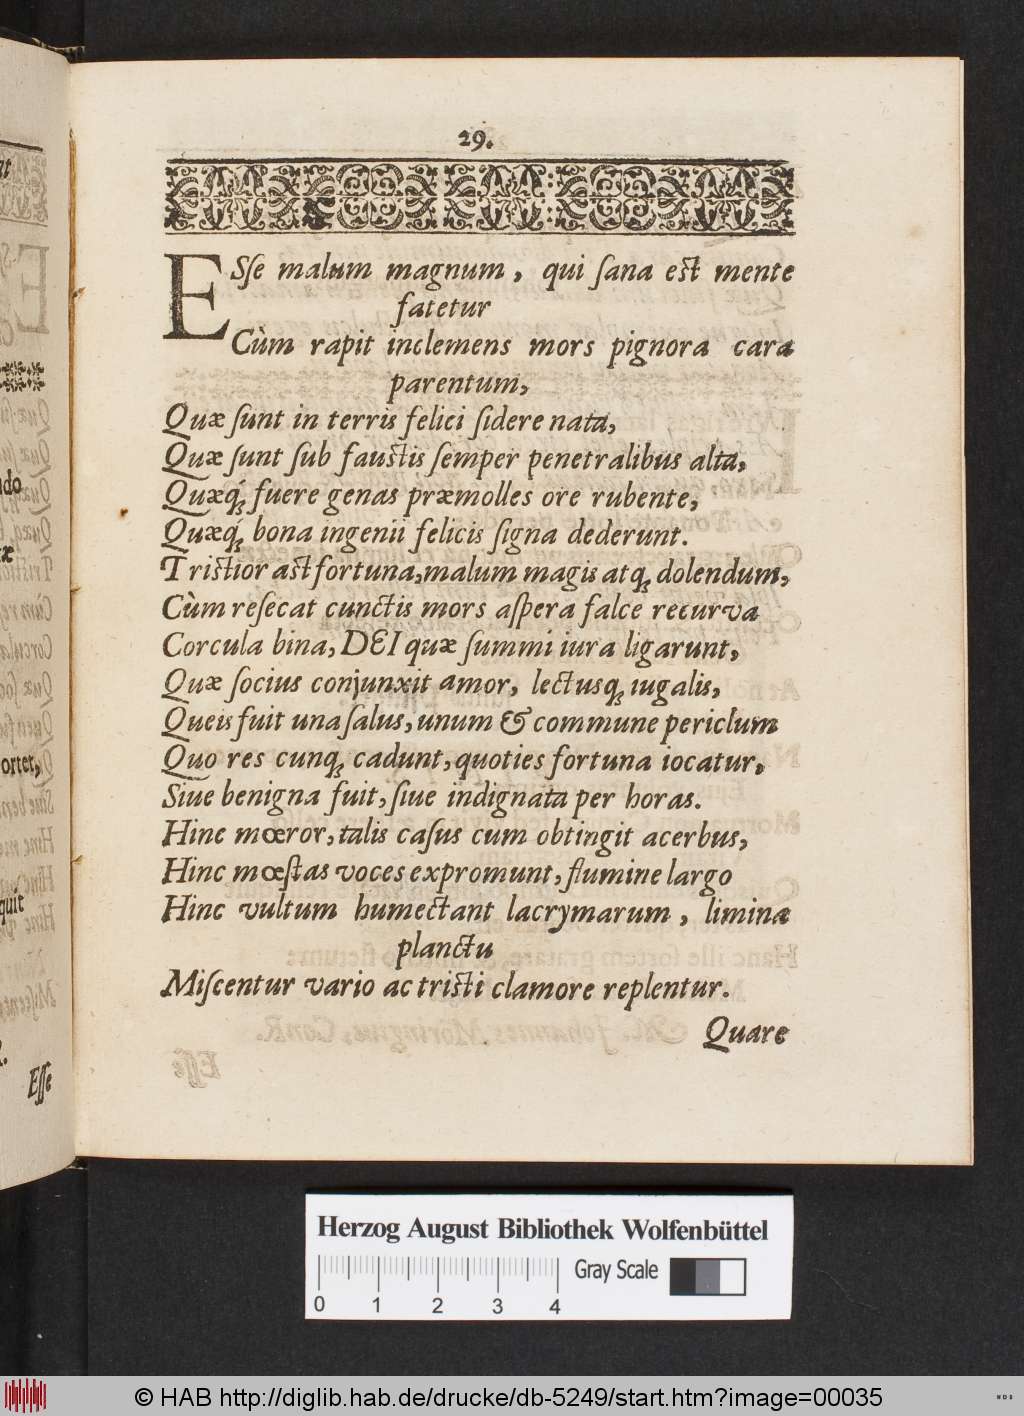 29.
ESſe malum magnum, qui ſana eſt mente
fatetur
Cùm rapit inclemens mors pignora cara
parentum,
Quæ ſunt in terris felici ſidere nata,
Quæ ſunt ſub fauſtis ſemper penetralibus alta,
Quæq́; fuere genas præmolles ore rubente,
Quæq́; bona ingenii felicis ſigna dederunt.
Triſtior aſt fortuna, malum magis atq; dolendum,
Cùm reſecat cunctis mors aſpera falce recurva
Corcula bina, DEI quæ ſummi iura ligarunt,
Quæ ſocius conjunxit amor, lectusq; iugalis,
Queis fuit una ſalus, unum & commune periclum
Quo res cunq; cadunt, quoties fortuna iocatur,
Siue benigna fuit, ſiue indignata per horas.
Hinc mœror, talis caſus cum obtingit acerbus,
Hinc mœſtas voces expromunt, flumine largo
Hinc vultum humectant lacrymarum, limina
planctu
Miſcentur vario ac triſti clamore replentur.
Quare
ndo
orter,
quit
Eſſe
Herzog August Bibliothek Wolfenbüttel
0 1 2 3 4
Gray Scale
© HAB http://diglib.hab.de/drucke/db-5249/start.htm?image=00035